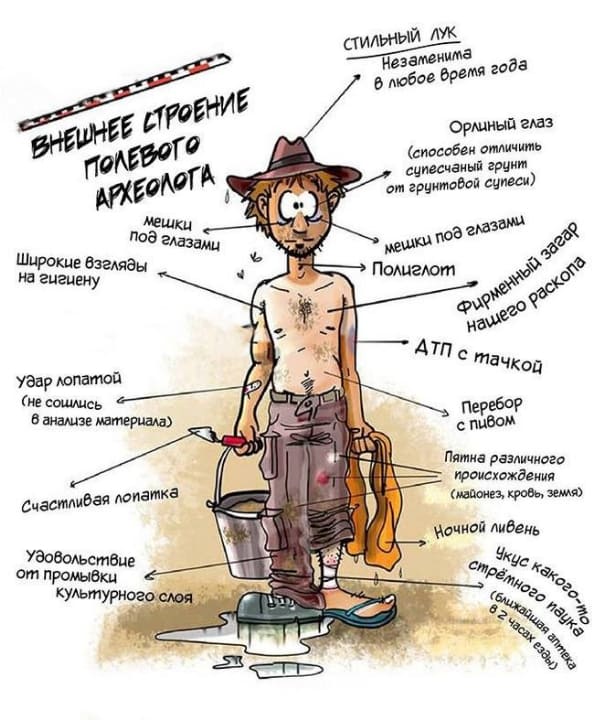 СТИЛЬНЫЙ ЛУК
Незаменима
в любое время года
ВНЕШНЕЕ СТРОЕНИЕ
ПОЛЕВОГО
АРХЕОЛОГА
Орлиный глаз
(способен отличить
супесчаный грунт
от грунтовой супеси)
мешки
под глазами
мешки под глазами
Широкие взгляды
на гигиену
Полиглот
Фирменный загар
нашего раскопа
ДТП с тачкой
Удар лопатой
(не сошлись
в анализе материала)
Перебор
с пивом
Пятна различного
происхождения
(майонез, кровь, земля)
Счастливая лопатка
Ночной ливень
Удовольствие
от промывки
культурного слоя
Укус какого-то
стрёмного паука
(ближайшая аптека
в 2 часах езды)